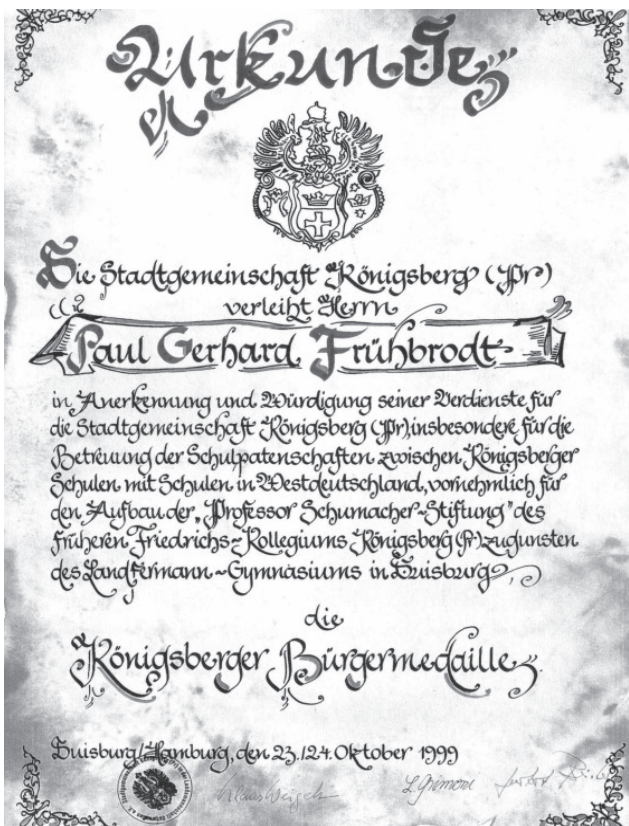 Urkunde
Die Stadtgemeinschaft Königsberg (Pr)
verleiht Herrn
Paul Gerhard Frühbrodt
in Anerkennung und Würdigung seiner Verdienste für
die Stadtgemeinschaft Königsberg (Pr), insbesondere für die
Betreuung der Schulpatenschaften zwischen Königsberger
Schulen mit Schulen in Westdeutschland, vornehmlich für
den Aufbau der „Professor Schumacher-Stiftung" des
früheren Friedrichs-Kollegiums Königsberg (Pr) zugunsten
des Landfermann-Gymnasiums in Duisburg,
die
Königsberger Bürgermedaille
Duisburg/Hamburg, den 23./24. Oktober 1999
Klaus Weigelt L. Grimoni